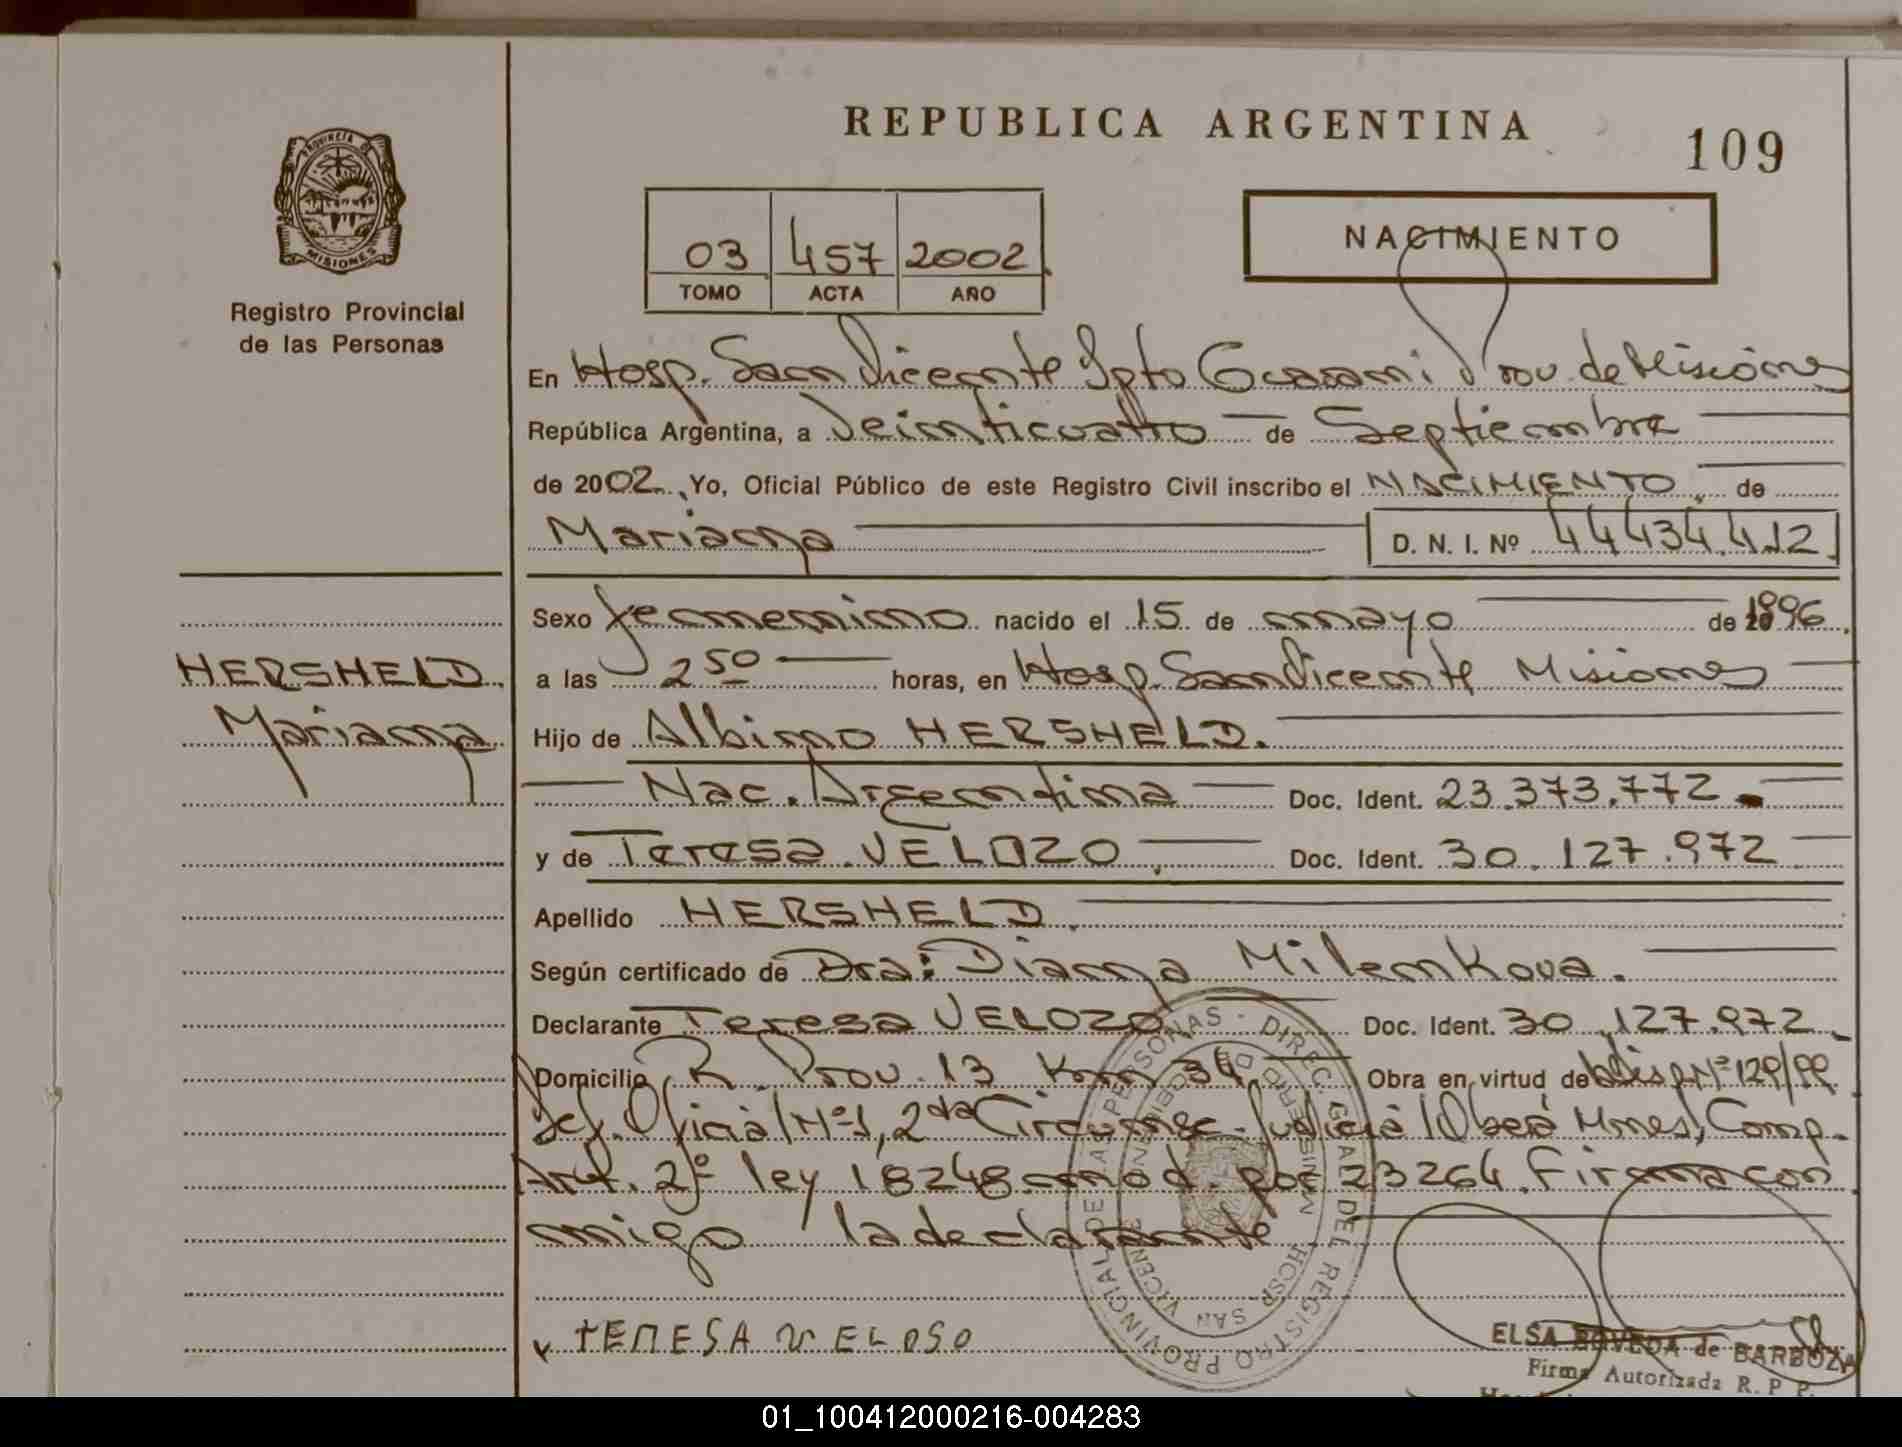 REPUBLICA ARGENTINA
109
PROVINCIA DE
MISIONES
Registro Provincial
de las Personas
03 457 2002
TOMO ACTA AÑO
NACIMIENTO
En Hosp. San Vicente Dpto Guarani Prov. de Misiones
República Argentina, a Veinticuatro de Septiembre
de 2002, Yo, Oficial Público de este Registro Civil inscribo el NACIMIENTO, de
Mariana D. N. I. Nº 44434.412
Sexo femenino nacido el 15 de mayo de 1996
HERSHELD
Mariana
a las 2 50 horas, en Hosp. San Vicente Misiones
Hijo de Albino HERSHELD.
Nac. Argentina Doc. Ident. 23.373.772
y de Teresa VELOZO Doc. Ident. 30.127.972
Apellido HERSHELD
Según certificado de Dra: Diana Milenkova.
Declarante Teresa VELOZO Doc. Ident. 30.127.972
Domicilio R. Prov. 13 Km 34 Obra en virtud de Disp Nº 129/99
Def. Oficial Nº1, 2da Circunsc. Judicial Oberá Mnes, Comp.
Art. 2º ley 18248 mod. por 23264. Firma con
migo la declarante
TERESA VELOSO
REGISTRO PROVINCIAL DE LAS PERSONAS - DIREC. GRAL DEL
HOSP. SAN VICEN
ELSA BOVEDA de BARBOZA
Firma Autorizada R. P. P.
01_100412000216-004283